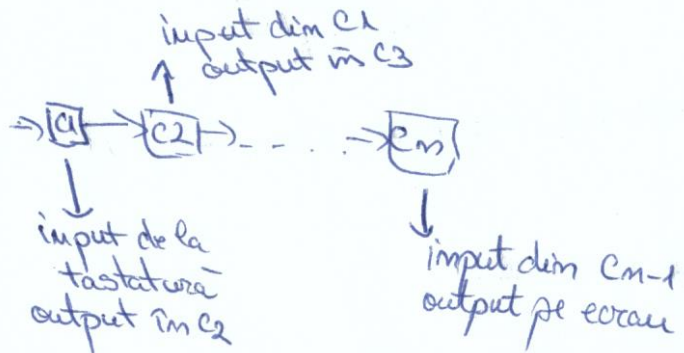 input din C1
output în C3
C1 C2 Cn
input de la
tastatură
output în C2
input din Cn-1
output pe ecran